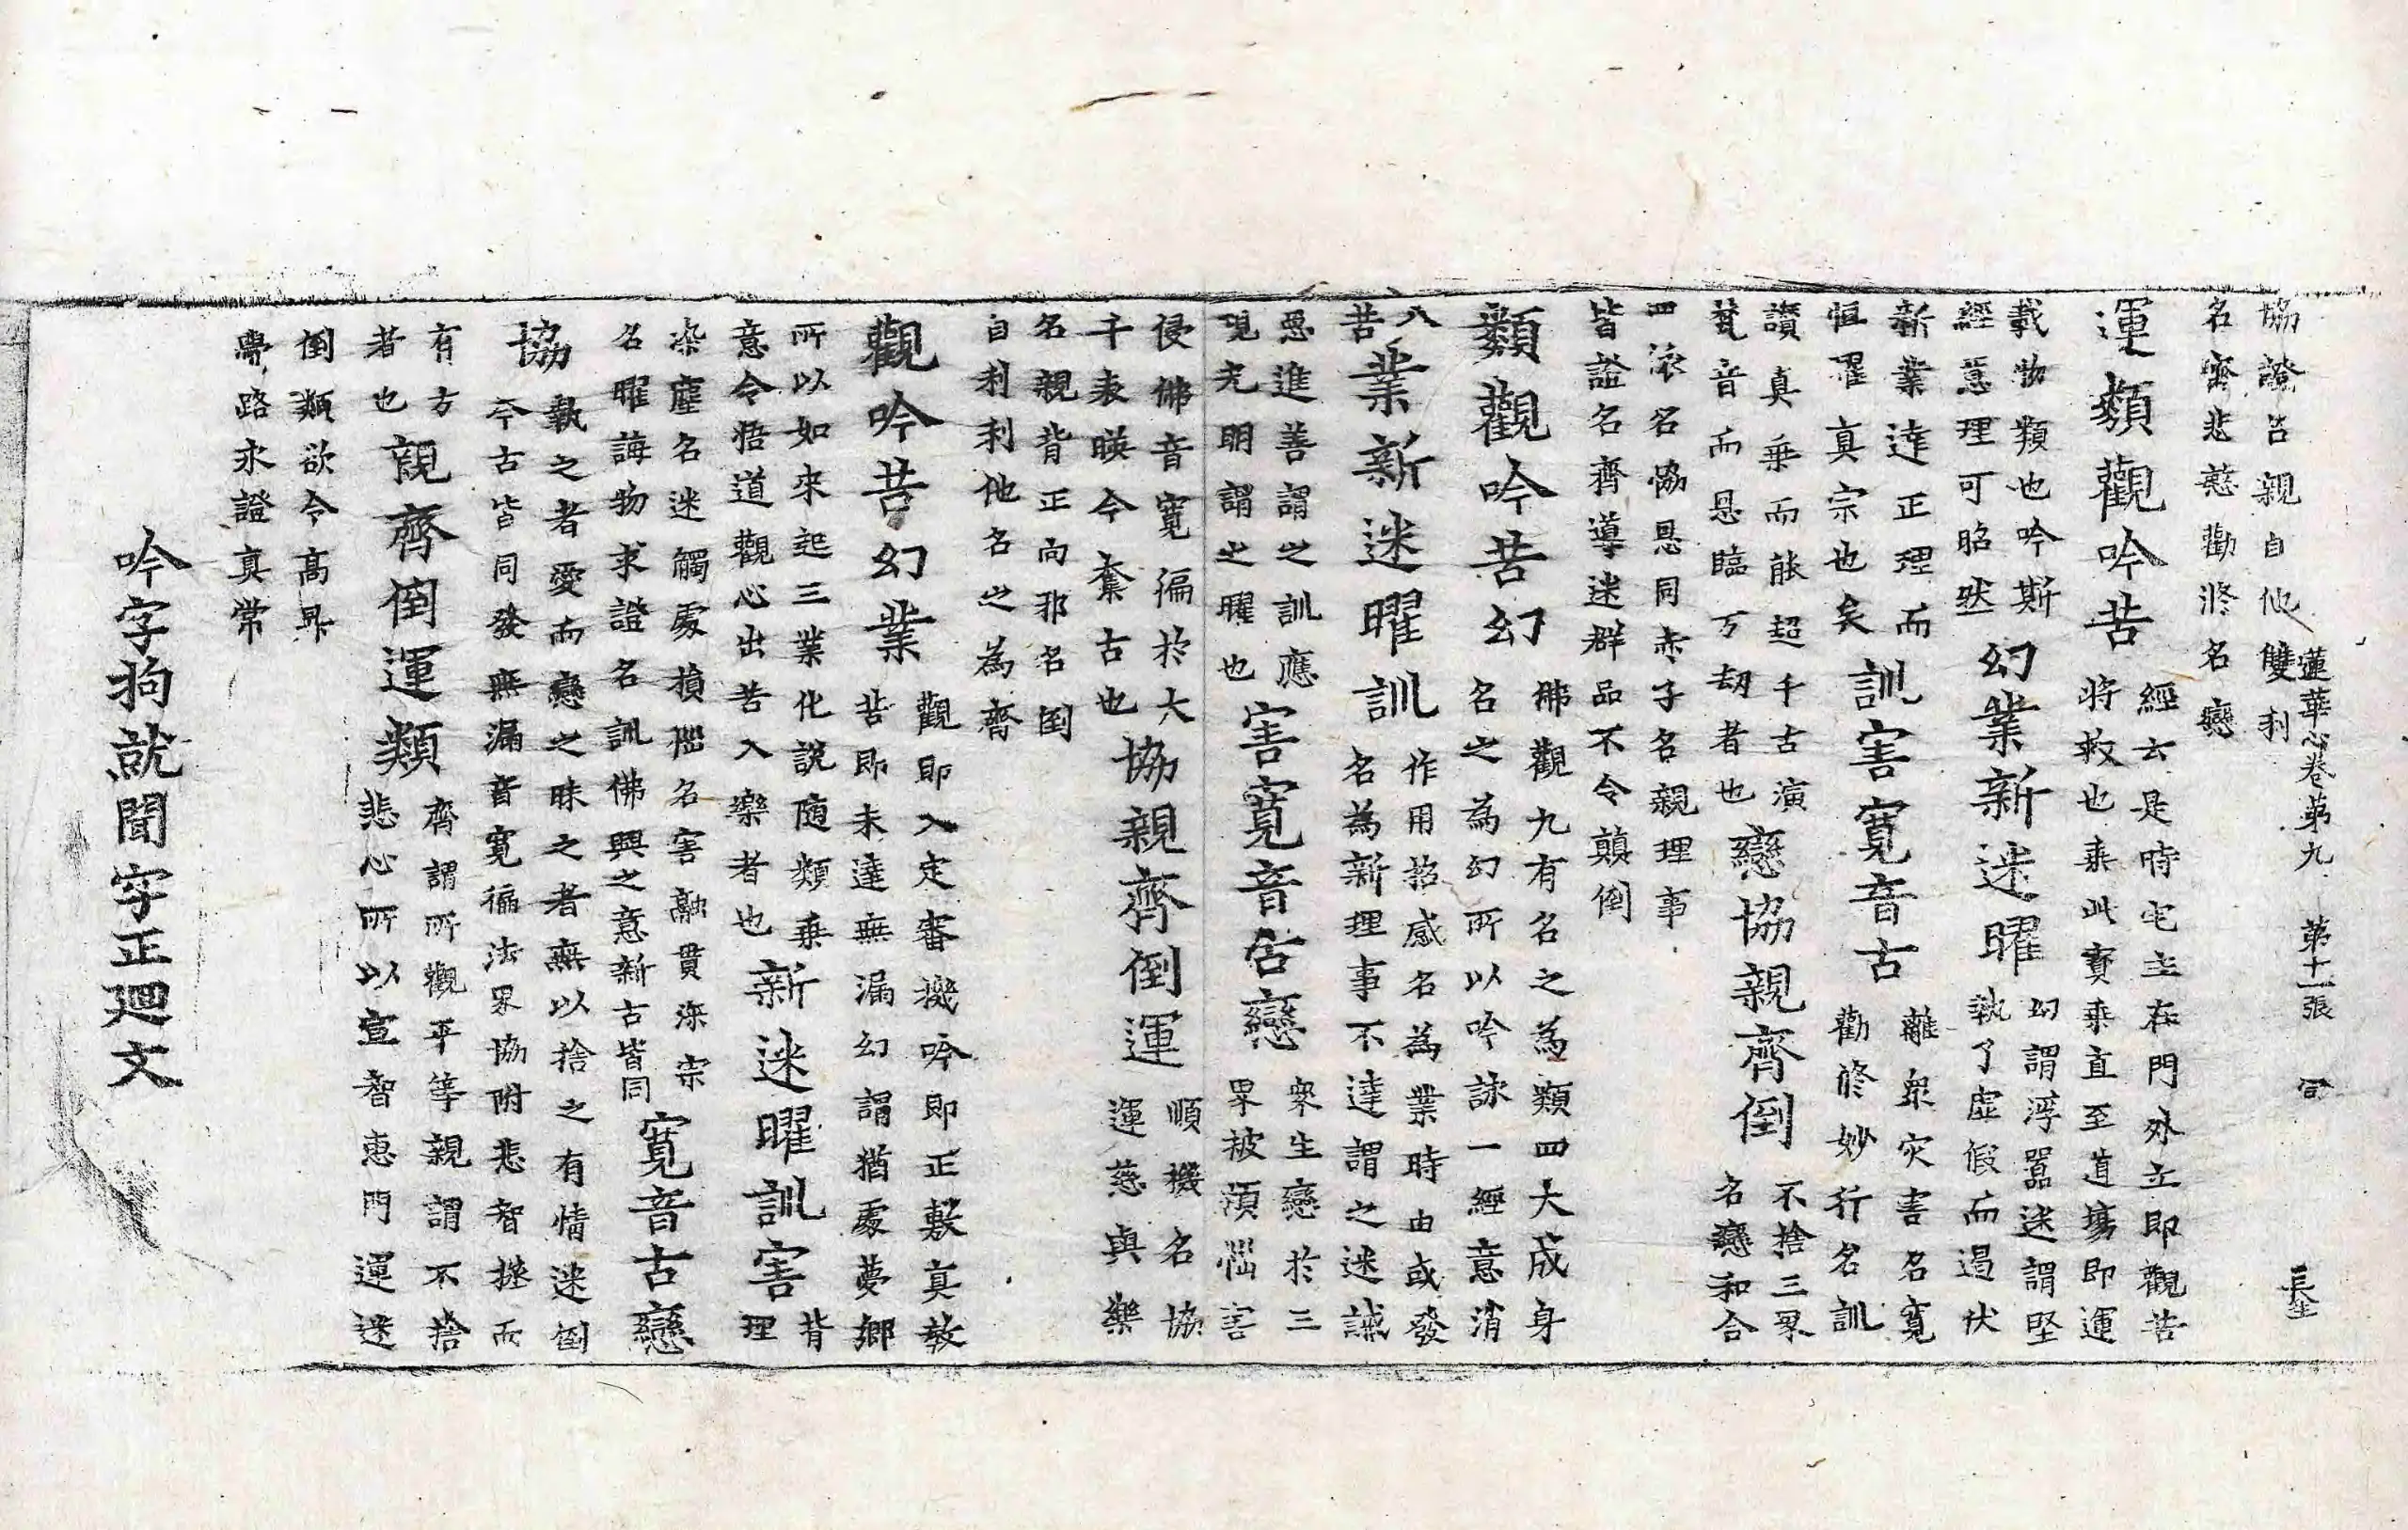 協證古親自他雙利
名齊悲慜勸修名戀
蓮華心卷第九 第十一張 㑒 長生
運類觀吟苦
經云是時宅主在門外立即觀苦
將救也乘此寶乘直至道場即運
載物類也吟斯
經意理可昭然
幻業新迷曜
幻謂浮囂迷謂堅
執了虛假而過伏
新業達正理而
恒曜真宗也矣
訓害寬音古
離衆灾害名寬
勸修妙行名訓
讃真乗而能超千古演
梵音而恳臨万刼者也
戀協親齊倒
不捨三界
名戀和合
四衆名恊恳同赤子名親理事
皆證名齊導迷群品不令顛倒
類觀吟苦幻
佛觀九有名之為類四大成身
名之為幻所以吟詠一經意消
八
苦
業新迷曜訓
作用招感名為業時由或發
名為新理事不達謂之迷誡
惡進善謂之訓應
現光明謂之曜也
害寬音古戀
衆生戀於三
界被煩惱害
侵佛音寬徧於大
千表暎今奈古也
協親齊倒運
順機名協
運慈與樂
名親背正向邪名倒
自利利他名之為齊
觀吟苦幻業
觀即入定審機吟即正敷真教
苦即未達無漏幻謂猶處夢鄉
所以如來起三業化說隨類乗
意令悟道觀心出苦入樂者也
新迷曜訓害
背
理
染塵名迷觸處損惱名害融貫深宗
名曜誨物求證名訓佛興之意新古皆同
寬音古戀
協
執之者愛而戀之昧之者無以捨之有情迷倒
今古皆同發無漏音寬徧法界協附悲智揔而
有方
者也
親齊倒運類
齊謂所觀平等親謂不捨
悲心所以宣智惠門運迷
倒類欲令高昇
覺路永證真常
吟字拘就聞字正廻文